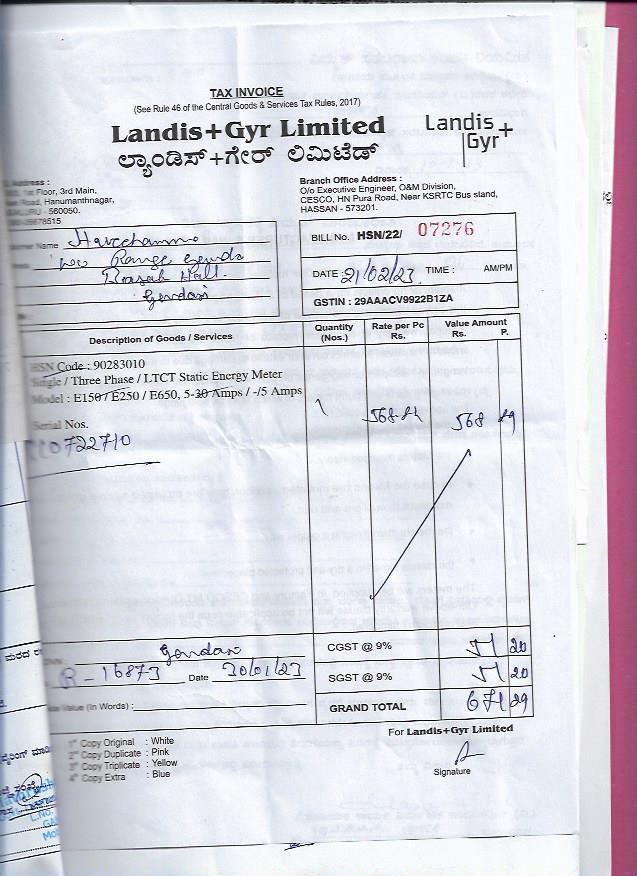 TAX INVOICE
(See Rule 46 of the Central Goods & Services Tax Rules, 2017)
Landis+Gyr Limited
ಲ್ಯಾಂಡಿಸ್+ಗೇರ್ ಲಿಮಿಟೆಡ್
Landis+
Gyr
Address :
1st Floor, 3rd Main,
Road, Hanumanthnagar,
- 560050.
Branch Office Address :
O/o Executive Engineer, O&M Division,
CESCO, HN Pura Road, Near KSRTC Bus stand,
HASSAN - 573201.
Name
Gendasi
BILL No. HSN/22/ 07276
DATE : 21/02/23 TIME : AM/PM
GSTIN : 29AAACV9922B1ZA
Description of Goods / Services
Quantity (Nos.)
Rate per Pc Rs.
Value Amount Rs. P.
HSN Code : 90283010
Single / Three Phase / LTCT Static Energy Meter
Model : E150 / E250 / E650, 5-30 Amps / -/5 Amps
1
568 84
568 89
Serial Nos.
0722710
Gendasi
R-16873 Date 30/01/23
Value (In Words) :
CGST @ 9% 51 20
SGST @ 9% 51 20
GRAND TOTAL 671 29
For Landis+Gyr Limited
Signature
1st Copy Original : White
2nd Copy Duplicate : Pink
3rd Copy Triplicate : Yellow
4th Copy Extra : Blue